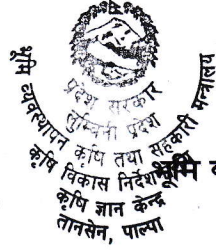 प्रदेश सरकार
लुम्बिनी प्रदेश
भूमि व्यवस्थापन कृषि तथा सहकारी मन्त्रालय
कृषि विकास निर्देशनालय
कृषि ज्ञान केन्द्र
तानसेन, पाल्पा
भूमि व